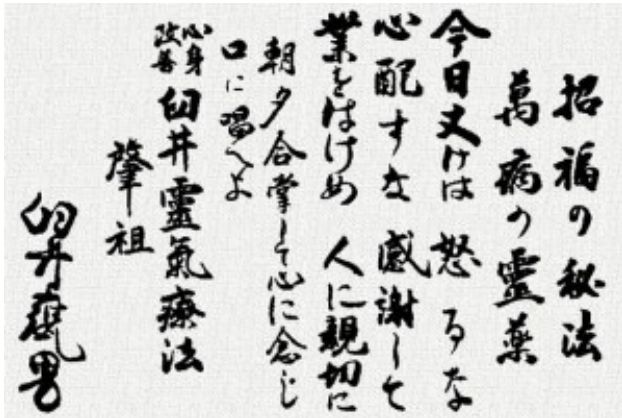 招福の秘法
萬病の霊薬
今日丈けは 怒るな
心配すな 感謝して
業をはけめ 人に親切に
朝夕合掌して心に念じ
口に唱へよ
心身
改善 臼井靈氣療法
肇祖
臼井甕男